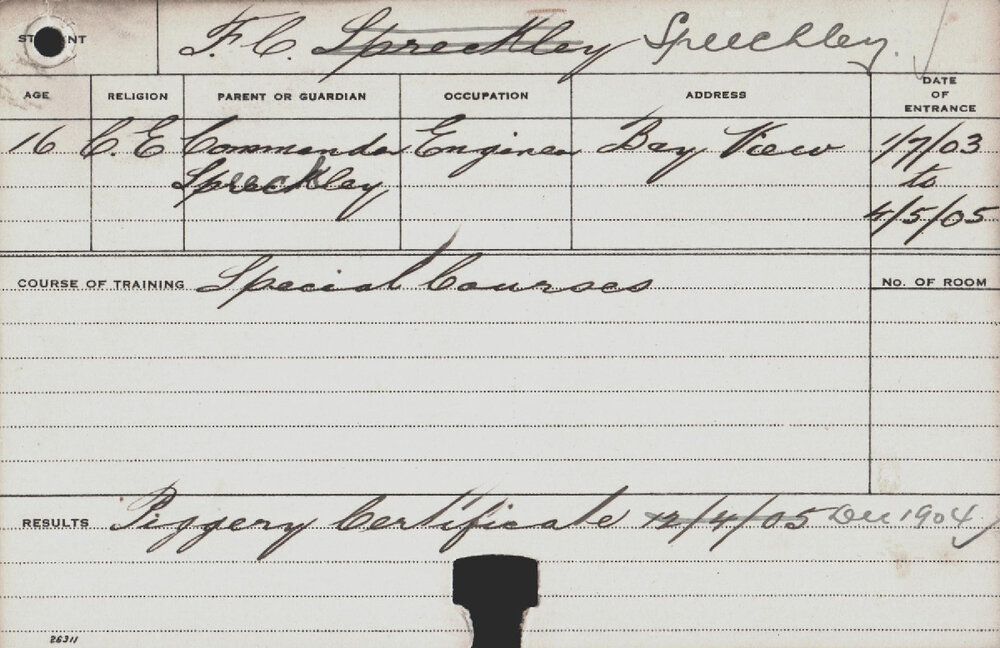 STUDENT F. C. Spreckley Speechley.
AGE RELIGION PARENT OR GUARDIAN OCCUPATION ADDRESS DATE OF ENTRANCE
16 C. E Commander Engineer Bay View 1/7/03
Spreckley to
4/5/05
COURSE OF TRAINING Special Courses No. OF ROOM
RESULTS Piggery Certificate 12/4/05 Dec 1904
26311